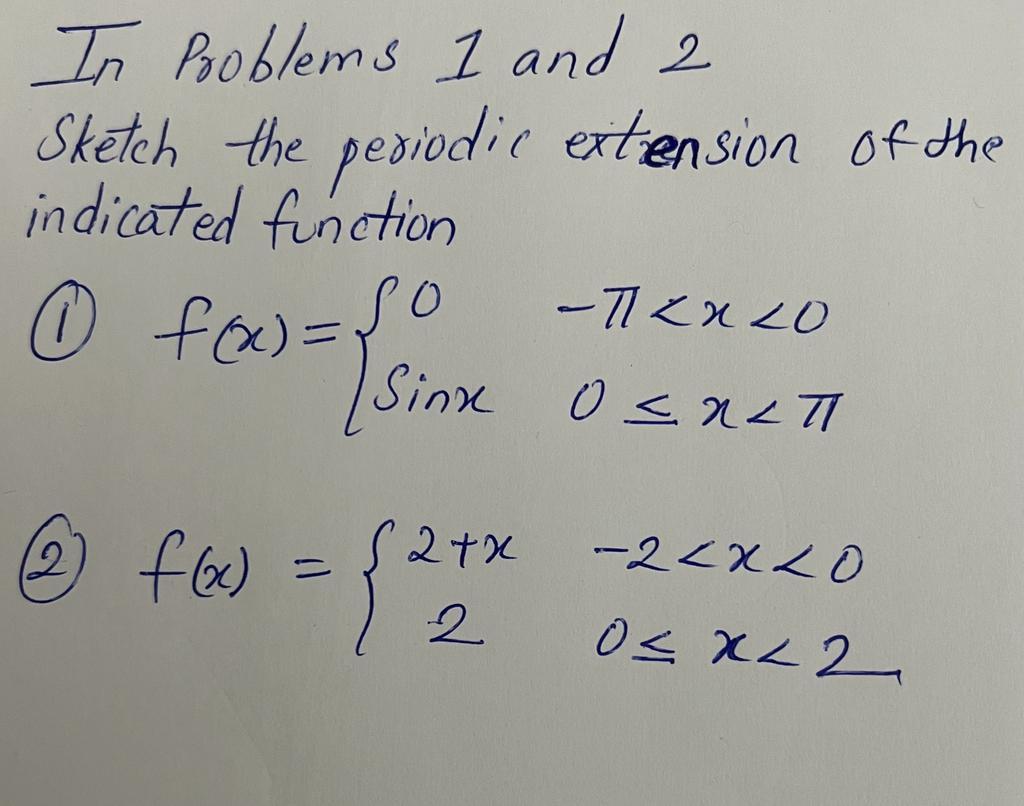 In Problems 1 and 2
Sketch the periodic extension of the
indicated function
① f(x) = { 0 -π < x < 0
Sinx 0 ≤ x < π
② f(x) = { 2+x -2 < x < 0
2 0 ≤ x < 2